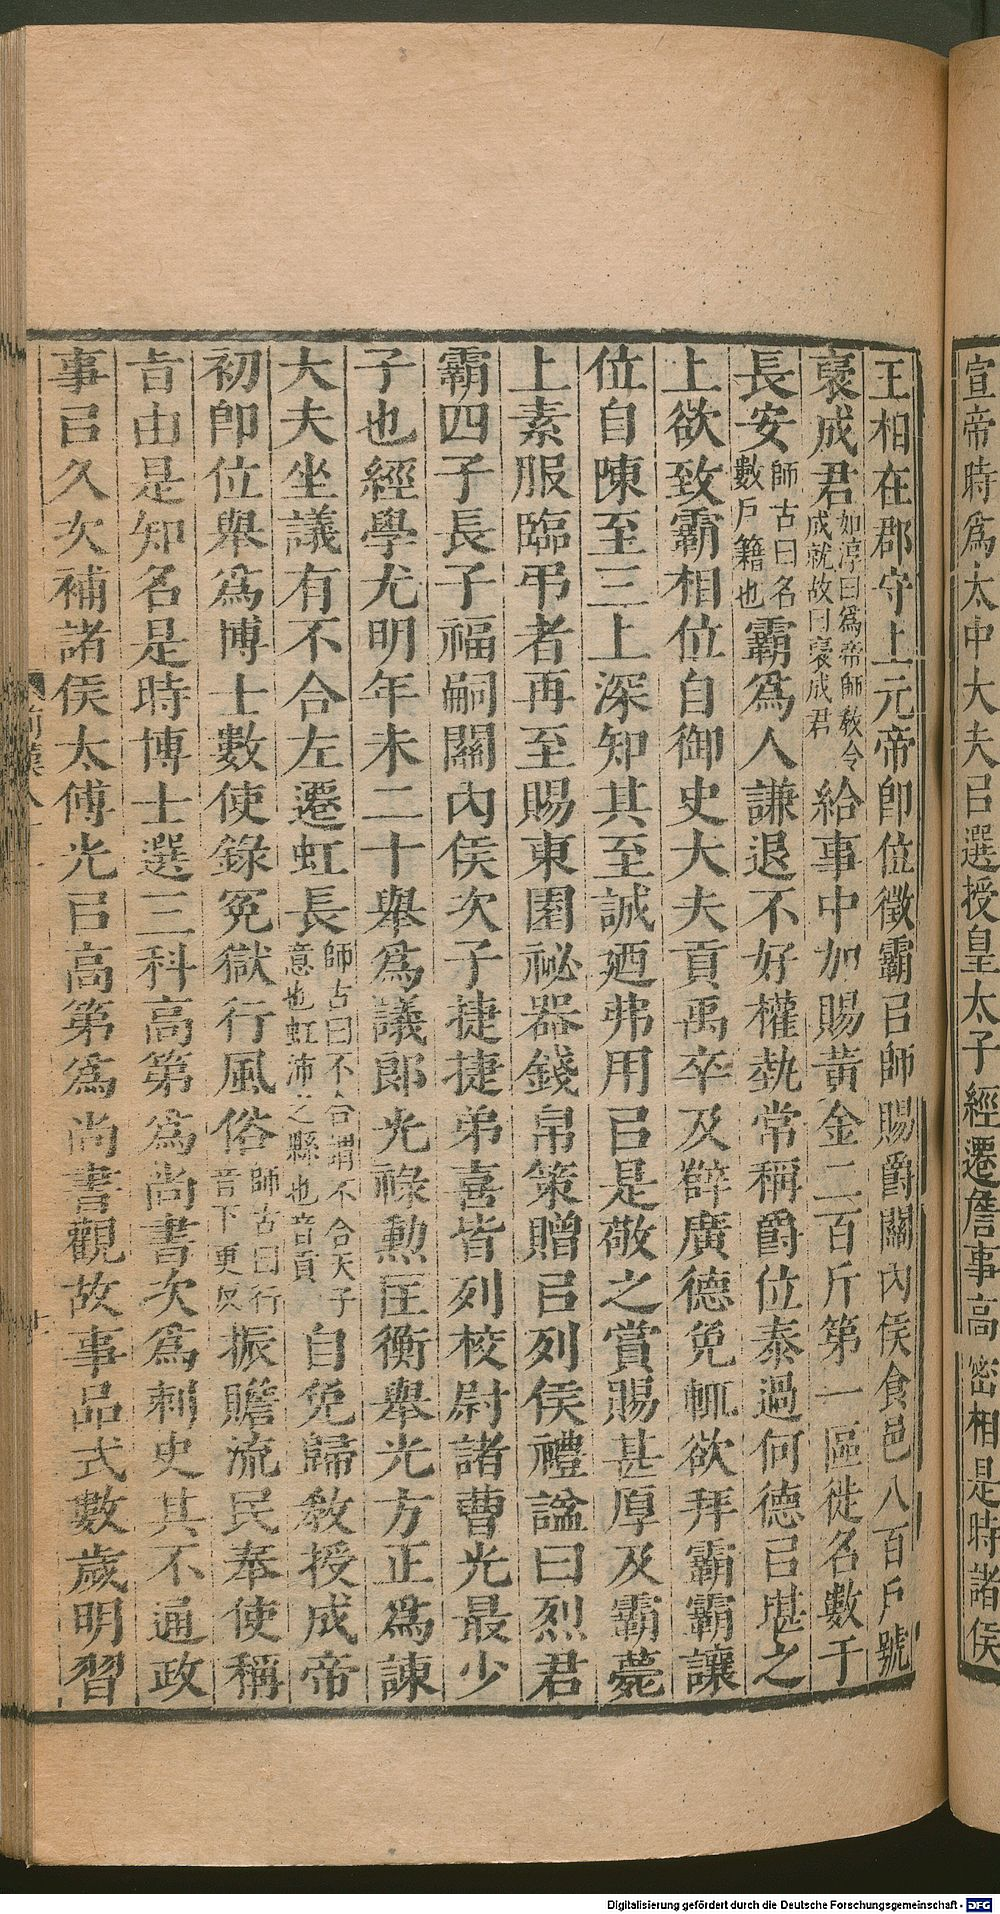 宣帝時爲太中大夫㠯選授皇太子經遷詹事高密相是時諸侯
王相在郡守上元帝即位徵霸㠯師賜爵關內侯食邑八百戶號
襃成君如淳曰爲帝師敎令成就故曰襃成君給事中加賜黃金二百斤第一區徙名數于
長安師古曰名數戶籍也霸爲人謙退不好權埶常稱爵位泰過何德㠯堪之
上欲致霸相位自御史大夫貢禹卒及薛廣德免輒欲拜霸霸讓
位自陳至三上深知其至誠廼弗用㠯是敬之賞賜甚厚及霸薨
上素服臨弔者再至賜東園祕器錢帛策贈㠯列侯禮謚曰烈君
霸四子長子福嗣關內侯次子捷捷弟喜皆列校尉諸曹光最少
子也經學尤明年未二十舉爲議郎光祿勲匡衡舉光方正爲諫
大夫坐議有不合左遷虹長師古曰不合謂不合天子意也虹沛之縣也音貢自免歸敎授成帝
初即位舉爲博士數使錄冤獄行風俗師古曰行音下更反振贍流民奉使稱
㫖由是知名是時博士選三科高第爲尚書次爲刺史其不通政
事㠯久次補諸侯太傅光㠯高第爲尚書觀故事品式數歲明習
前漢八十一
Digitalisierung gefördert durch die Deutsche Forschungsgemeinschaft - DFG